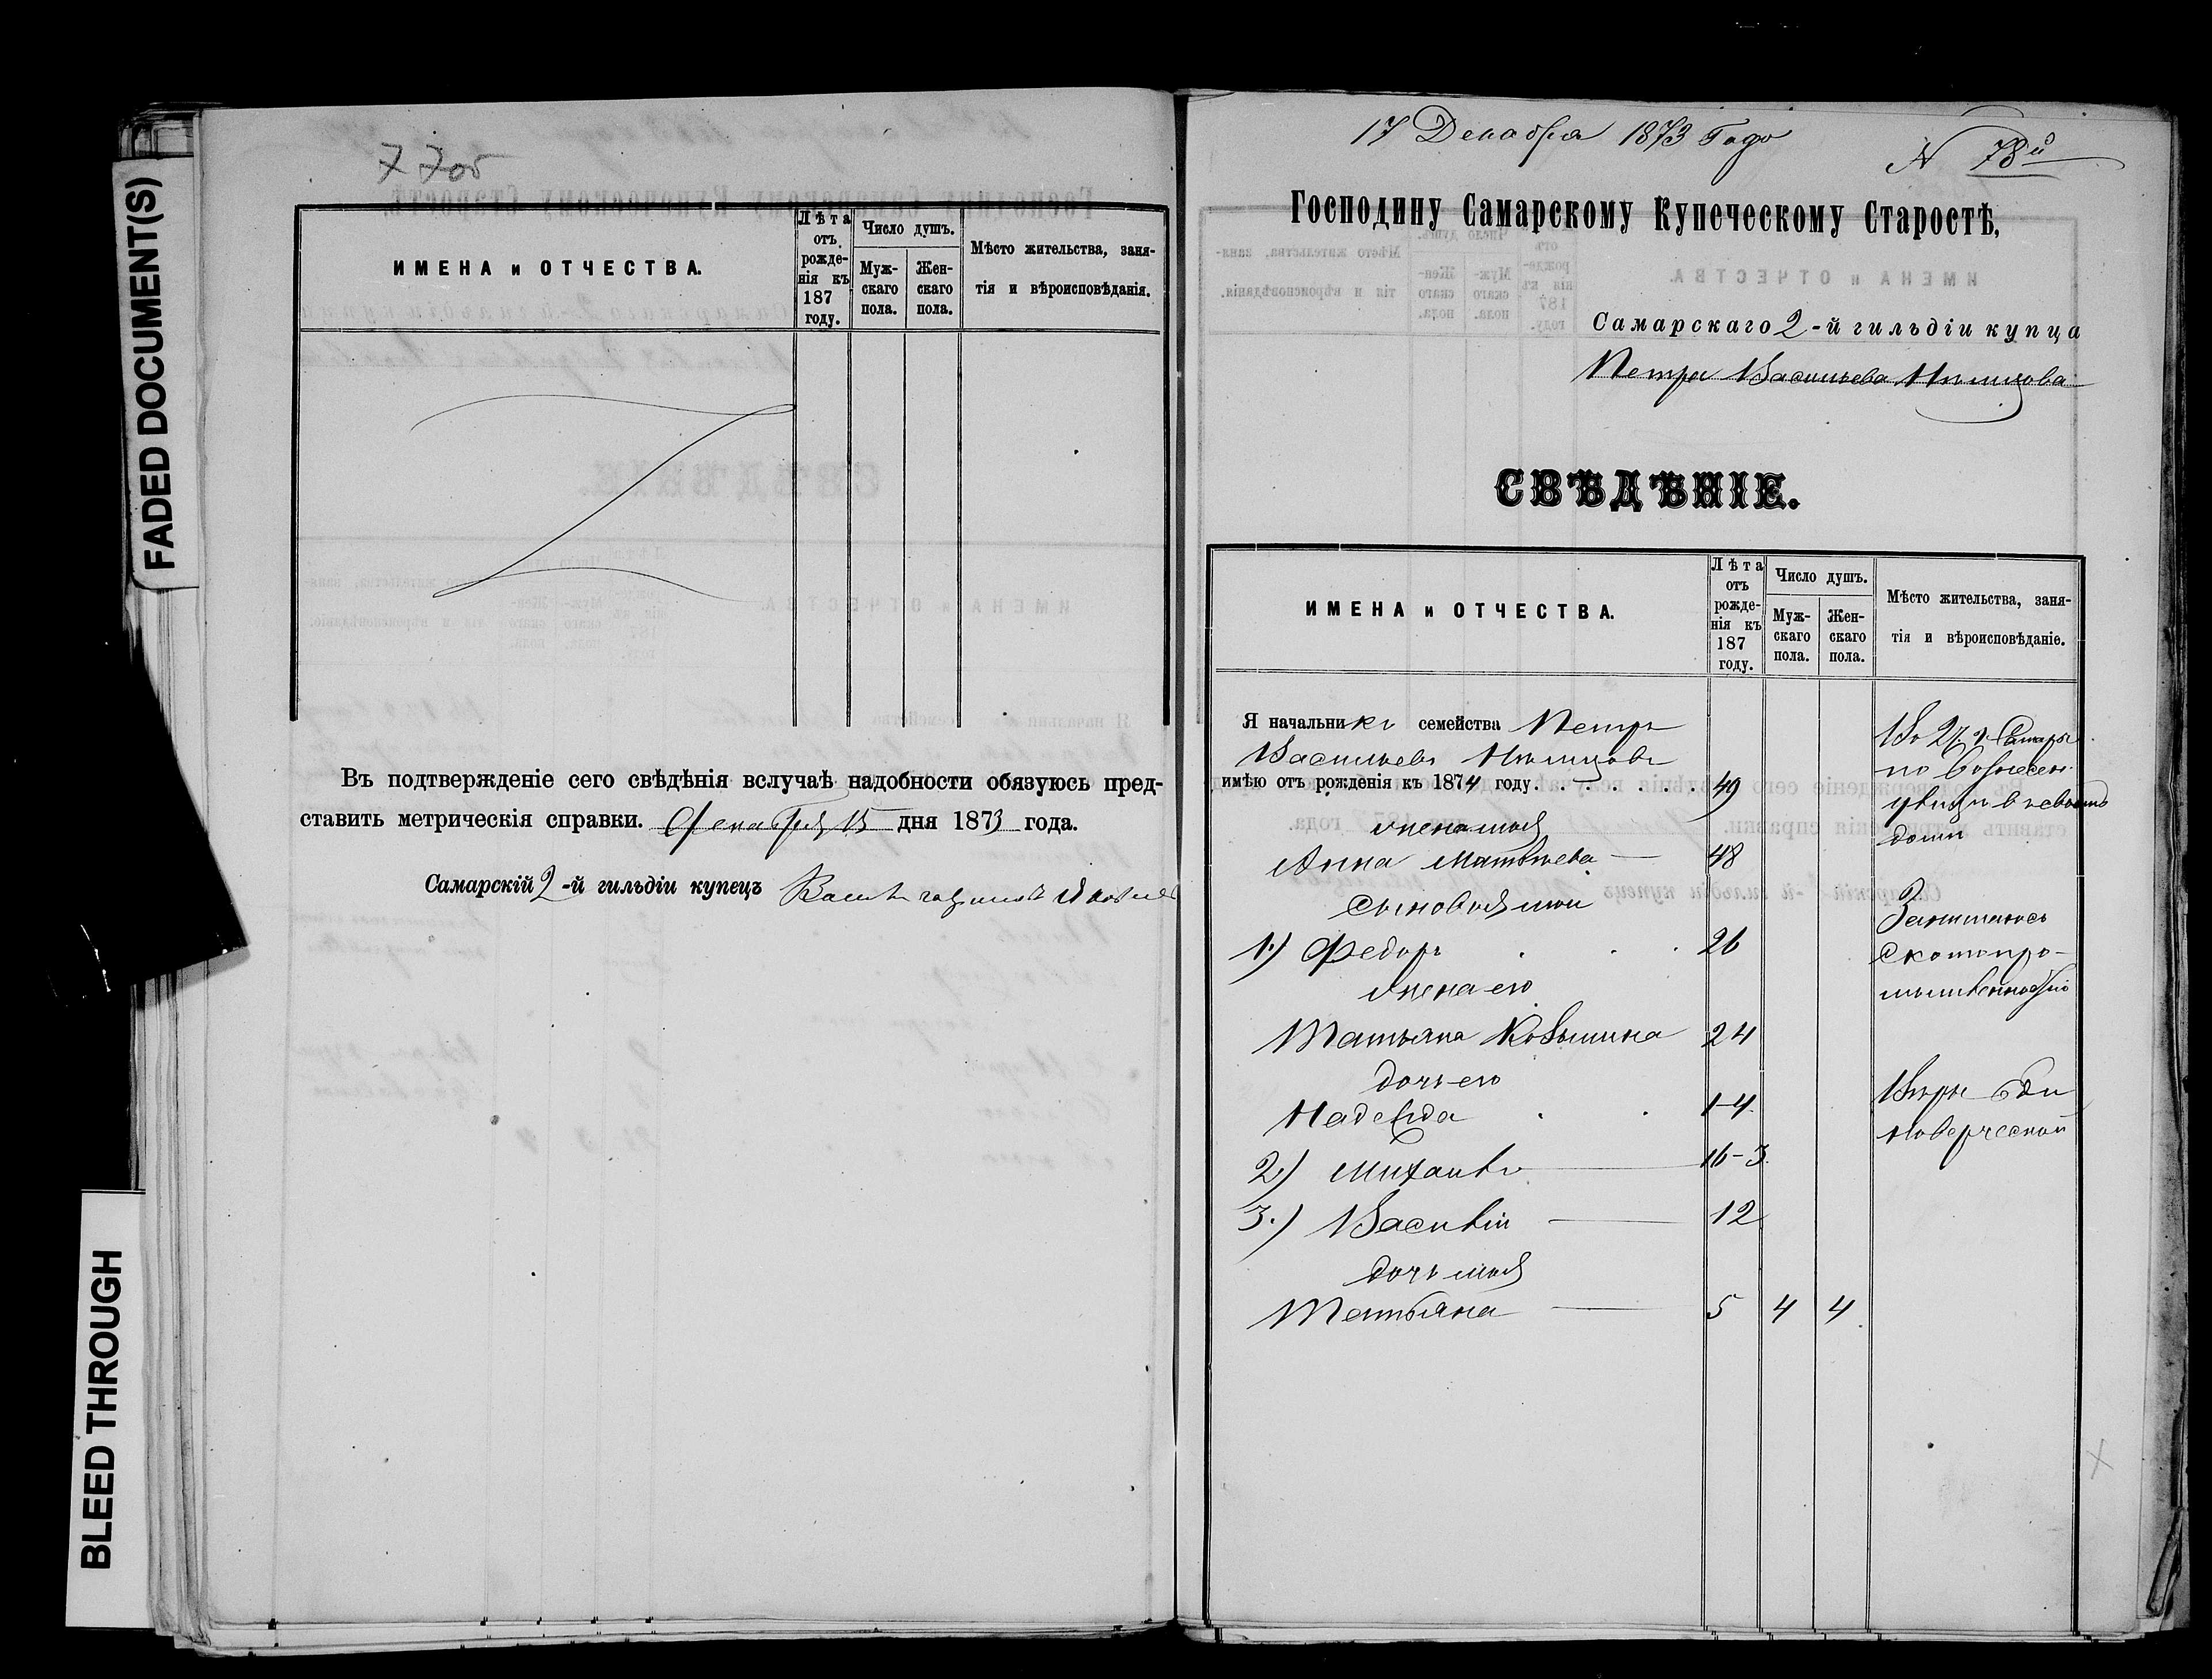 FADED DOCUMENT(S)
BLEED THROUGH
77об
ИМЕНА и ОТЧЕСТВА.
Лѣта отъ рожденія къ 187 году.
Число душъ.
Мужскаго пола.
Женскаго пола.
Мѣсто жительства, занятія и вѣроисповѣданія.
Въ подтвержденіе сего свѣдѣнія вслучаѣ надобности обязуюсь пред-
ставить метрическія справки. Декабря 15 дня 1873 года.
Самарскій 2-й гильдіи купецъ
17 Декабря 1873 Года
N 78й
Господину Самарскому Купеческому Старостѣ,
Самарскаго 2-й гильдіи купца
Петра Васильева
СВѢДѢНІЕ.
ИМЕНА и ОТЧЕСТВА.
Лѣта отъ рожденія къ 187 году.
Число душъ.
Мужскаго пола.
Женскаго пола.
Мѣсто жительства, занятія и вѣроисповѣданіе.
Я начальникъ семейства Петръ
Васильевъ
имѣю отъ рожденія къ 1874 году. . . . . . . 49
жена моя
Анна Матвѣева 48
сыновья мои
1.) Федоръ 26
жена его
Татьяна Козьмина 24
дочь его
Надежда 1-4
2.) Михаилъ 16-3
3.) Василій 12
дочь моя
Татьяна 5 4 4
Во 2й ч. Самары
по Вознесен.
улицы в своемъ
доми
Занимаюсь
скотопро-
мышленностію
Вѣры Еди
новерческой